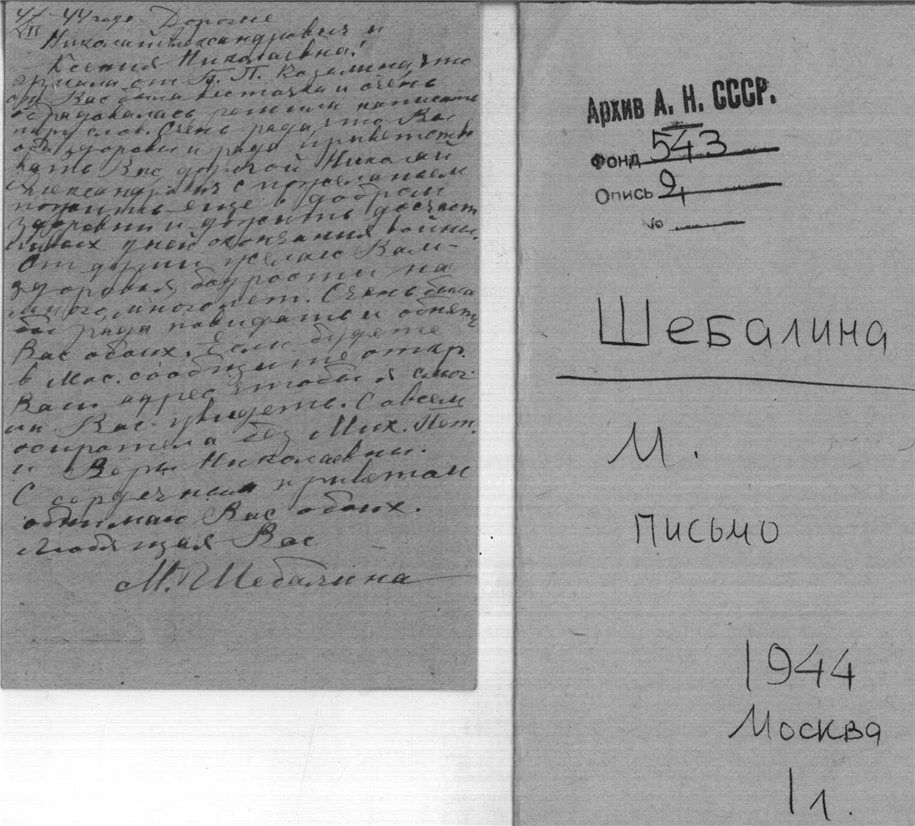 4/VII-44 года. Дорогие
Николай Александрович и
Ксения Николаевна!
узнала от Б. П. Козьмина, что
от Вас была весточка и очень
обрадовалась решила написать
пару слов. Очень рада, что Вы
оба здоровы и рада приветство
вать Вас дорогой Николай
Александрович с пожеланьем
пожить еще в добром
здоровьи и дожить до счаст
ливых дней окончания войны.
От души желаю Вам-
здоровья бодрости на
много, много лет. Очень была
бы рада повидать и обнять
Вас обоих. Если будете
в Мос. сообщите откр.
Ваш адрес чтобы я смог-
ла Вас увидеть. Совсем
осиротела без Мих. Пет.
и Веры Николаевны.
С сердечным приветом
обнимаю Вас обоих.
Любящая Вас
М. Шебалина
Архив А. Н. СССР.
Фонд 543
Опись
№
Шебалина
М.
письмо
1944
Москва
1 л.